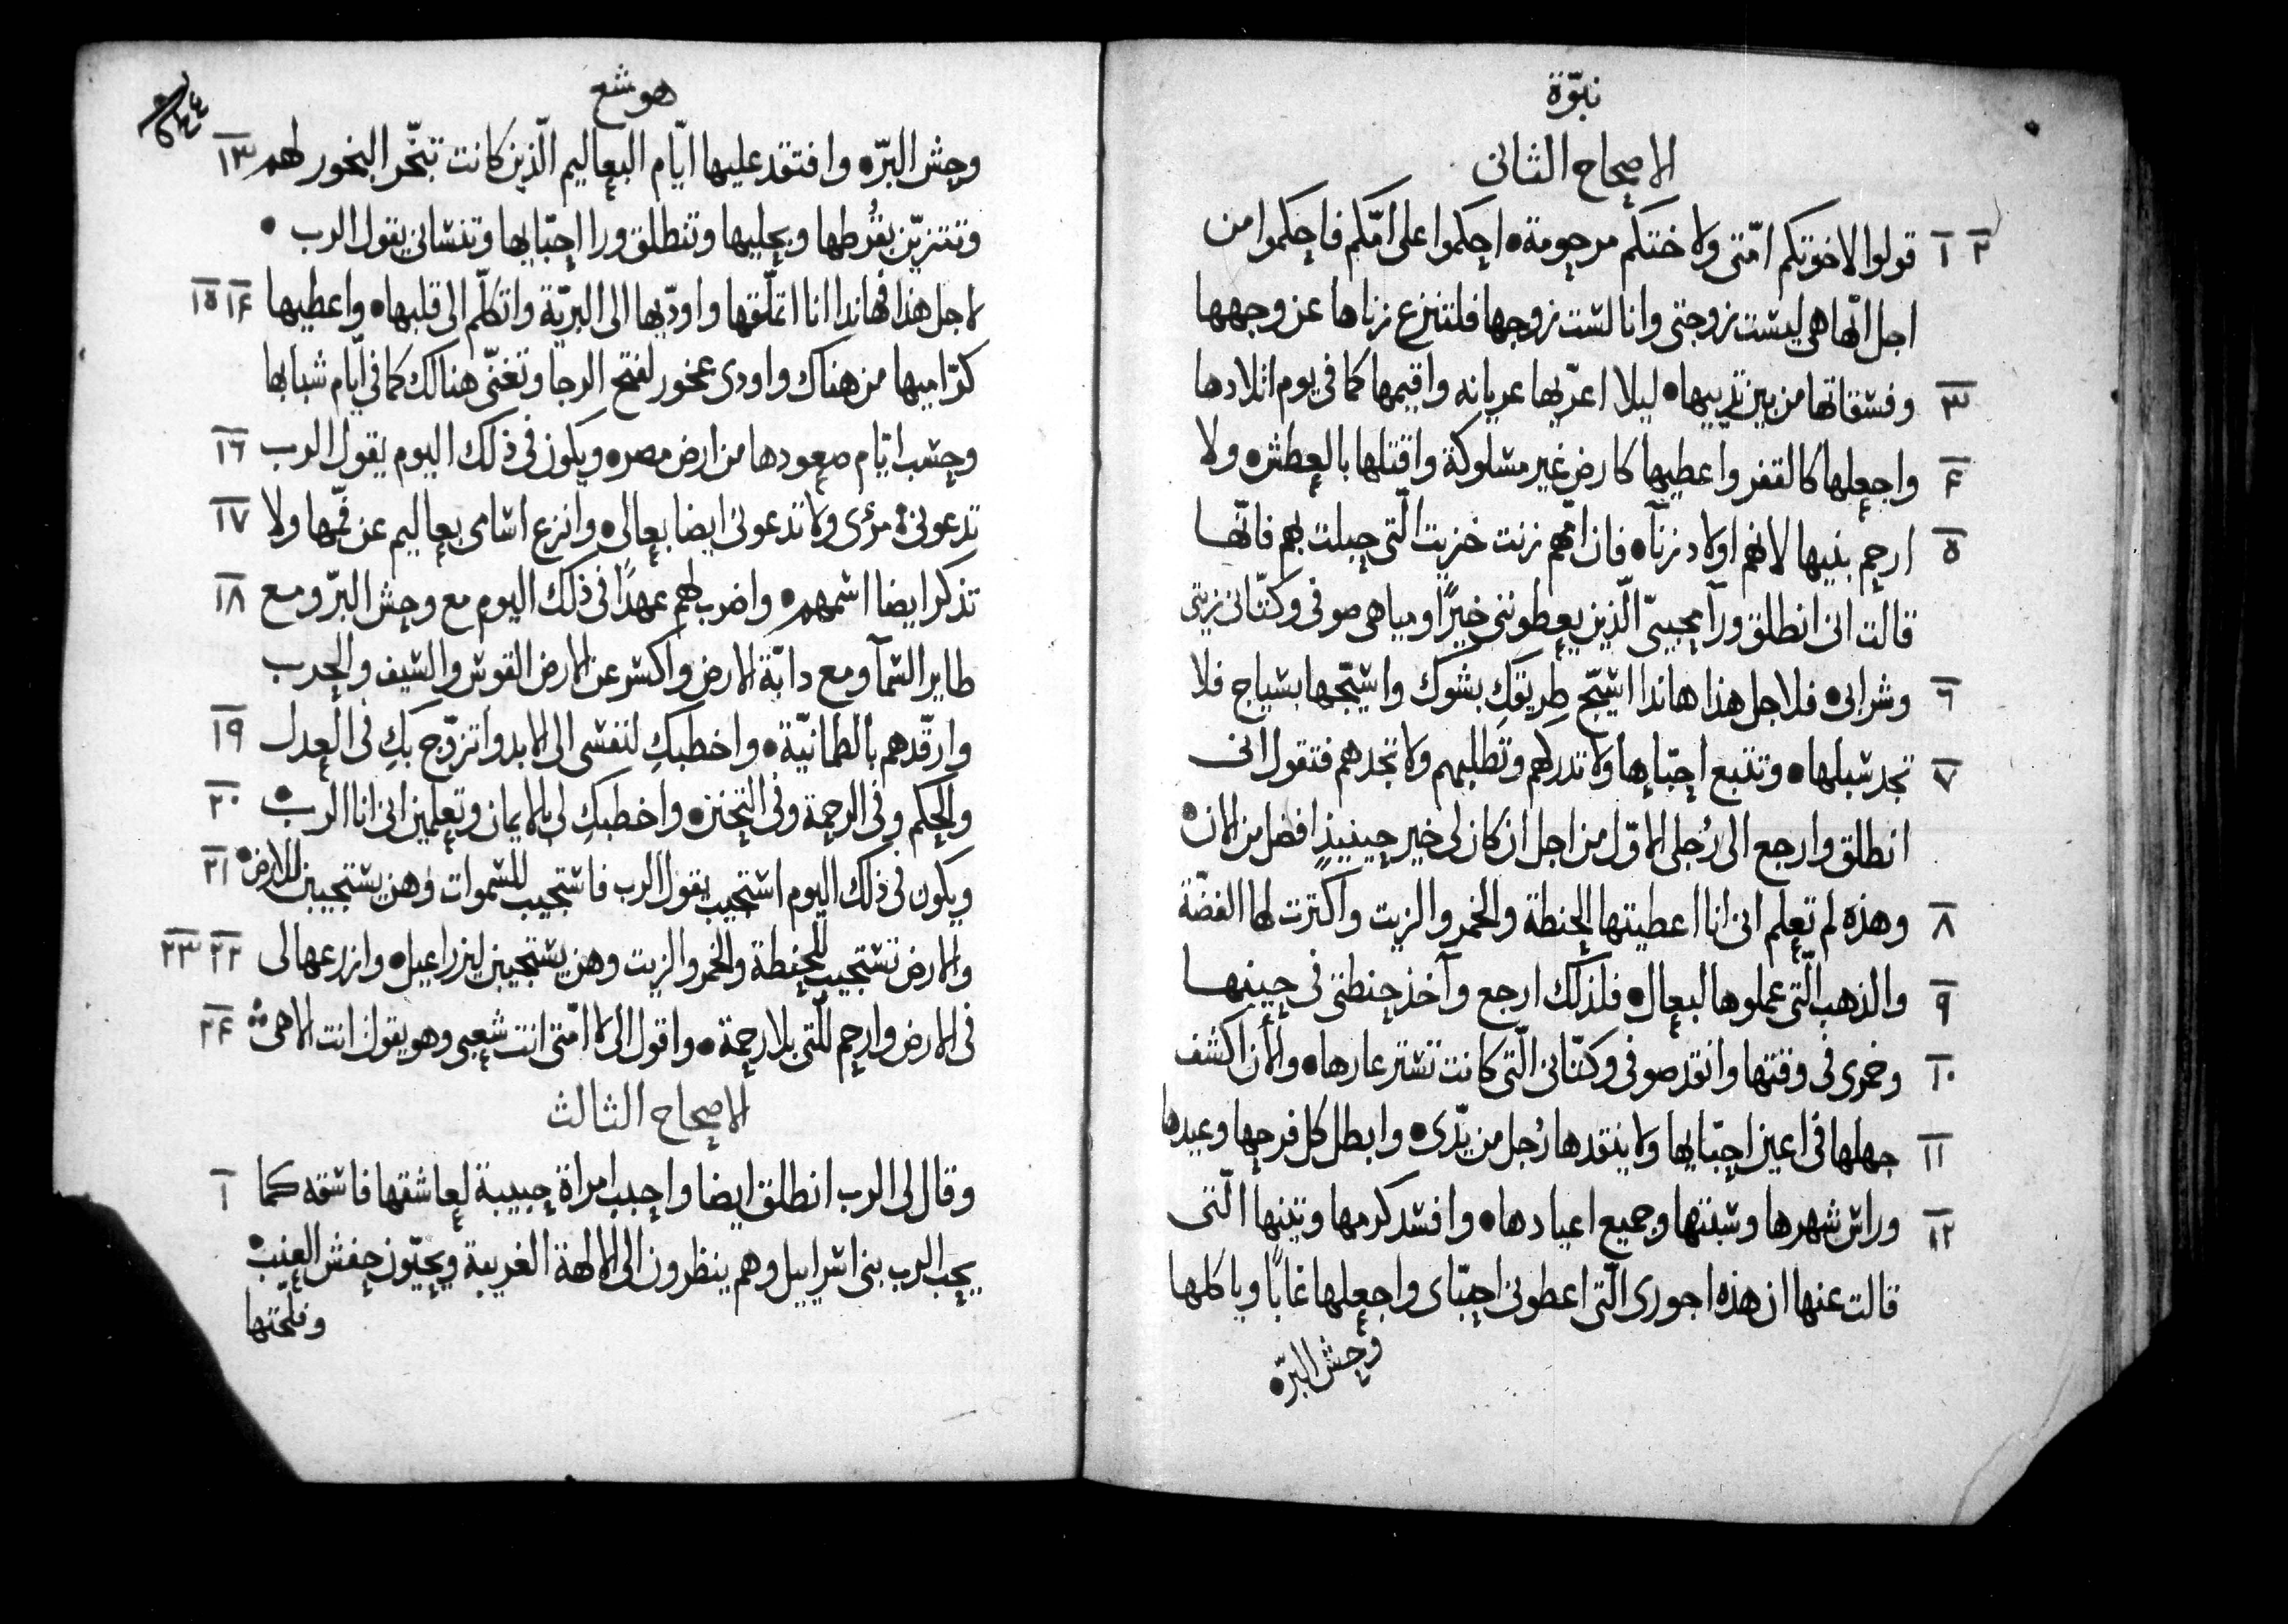 نبوّة
الاصحاح الثانى
٢ ١ قولوا لاخوتكم امّتى ولاختكم مرحومة• احكموا على امّكم فاحكموا من
اجل انّها هى ليست زوجتى وانا لست زوجها فلتنزع زناها عن وجهها
٣ وفسقاتها من بين ثدييها• ليلا اعرّيها عريانه واقيمها كما فى يوم اتلادها
۴ واجعلها كالقفر واعطيها كارض غير مسلوكة واقتلها بالعطش• ولا
٥ ارحم بنيها لانهم اولاد زنآ• فان امّهم زنت خزيت الّتى حبلت بهم فانّها
قالت انى انطلق ورآ محبيىّ الّذين يعطوننى خبزًا ومياهى صوفى وكتّانى زيتى
٦ وشرابى• فلاجل هذا هاندا اسيّج طريقكِ بشوك واسيّجها بسياج فلا
٧ تجد سبلها• وتتبع احبّاها ولا تدركهم وتطلبهم ولا تجدهم فتقول انى
انطلق وارجع الى رُجلى الاوّل من اجل ان كان لى خير حينيذٍ افضل من الان•
٨ وهذه لم تعلم انى انا اعطيتها الحنطة والخمر والزيت واكترت لها الفضّة
٩ والذهب الّتى عملوها لبعال• فلذلك ارجع وآخذ حنطتى فى حينها
١٠ وخمرى فى وقتها وانقذ صوفى وكتّانى الّتى كانت تستر عارها• والأن اكشف
١١ جهلها فى اعين احبّايها ولا ينقدها رُجل من يّدى• وابطل كل فرحها وعيدها
وراس شهرها وسبتها وجميع اعيادها• وافسد كرمها وتينها الّتى ١٢
قالت عنها ان هذه اجورى الّتى اعطونى احبّاى واجعلها غابًا وياكلها
وحش البرّه
هوشع
٥٤٤
وحش البرّ• وافتقد عليها ايّام البعاليم الّذين كانت تبخّر البخور لهم ١٣
وتتزيّن بقُرطها وبحليها وتنطلق ورا احبّايها وتنسانى يقول الرب •
لاجل هذا فهاندا انا اتملّقها واودّيها الى البريّة واتكلّم الى قلبها• واعطيها ١۴ ١٥
كرّاميها من هناك واودى عخور لفتح الرجا وتغنّى هنالك كما فى ايّام شبابها
وحسب ايّام صعودها من ارض مصر• ويكون فى ذلك اليوم يقول الرب ١٦
تدعونى مرئى ولا تدعونى ايضا بعالى• وانزع اسامى بعاليم عن فمّها ولا ١٧
تذكر ايضا اسمهم• واضرب لهم عهدًا فى ذلك اليوم مع وحش البرّ ومع ١٨
طاير السّمآ ومع دابّة الارض واكسر عن الارض القوس والسّيف والحرب
وارقّدهم بالطمانيّة• واخطبكِ لنفسى الى الابد واتزوّج بكِ فى العدل ١٩
والحكم وفى الرحمة وفى التحنن• واخطبكِ لى بالايمان وتعلمين انى انا الرب• ٢٠
ويكون فى ذلك اليوم استجيب يقول الرب فاستجيب للسموات وهن يستجيبن للارض• ٢١
والارض تستجيب للحنطة والخمر والزيت وهن يستجيبن ليزراعيل• وازرعها لى ٢٢ ٢٣
فى الارض وارحم للّتى بلا رحمة• واقول الى لا امّتى انت شعبى وهو يقول انت الاهى ٢۴
الاصحاح الثالث
وقال لى الرب انطلق ايضا واحبب امراة حبيبة لعاشقها فاسقه كما ١
يحب الرب بنى اسراييل وهم ينظرون الى الالهة الغريبة ويحبّون حفش العنب•
وفلحتها